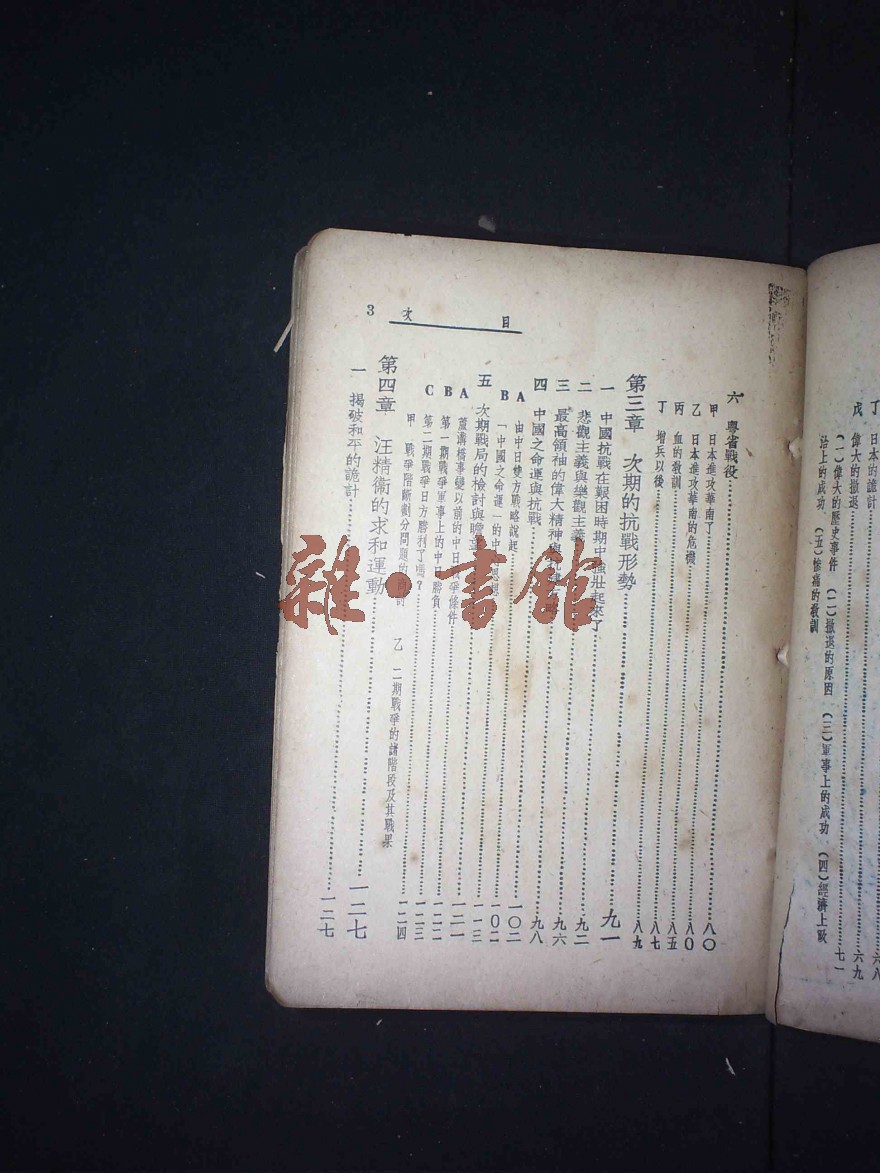 丁 日本的詭計 六八
戊 偉大的撤退 六九
(一)偉大的歷史事件 (二)撤退的原因 (三)軍事上的成功 (四)經濟上政
治上的成功 (五)慘痛的敎訓 七一
目次 3
六 粵省戰役 八〇
甲 日本進攻華南了 八〇
乙 日本進攻華南的危機 八五
丙 血的敎訓 八七
丁 增兵以後 八九
第三章 次期的抗戰形勢 九一
一 中國抗戰在艱困時期中強壯起來了 九二
二 悲觀主義與樂觀主義 九六
三 最高領袖的偉大精神與 九八
四 中國之命運與抗戰 一〇二
A 由中日雙方戰略說起 一〇二
B 「中國之命運」的中 思想 一一三
五 次期戰局的檢討與瞻望 一二一
A 蘆溝橋事變以前的中日戰爭條件 一二二
B 第一期戰爭軍事上的中 勝負 一二三
C 第二期戰爭日方勝利了嗎? 一二四
甲 戰爭階斷劃分問題的 討 乙 二期戰爭的諸階段及其戰果
第四章 汪精衞的求和運動 一二七
一 揭破和平的詭計 一二七
雜·書館